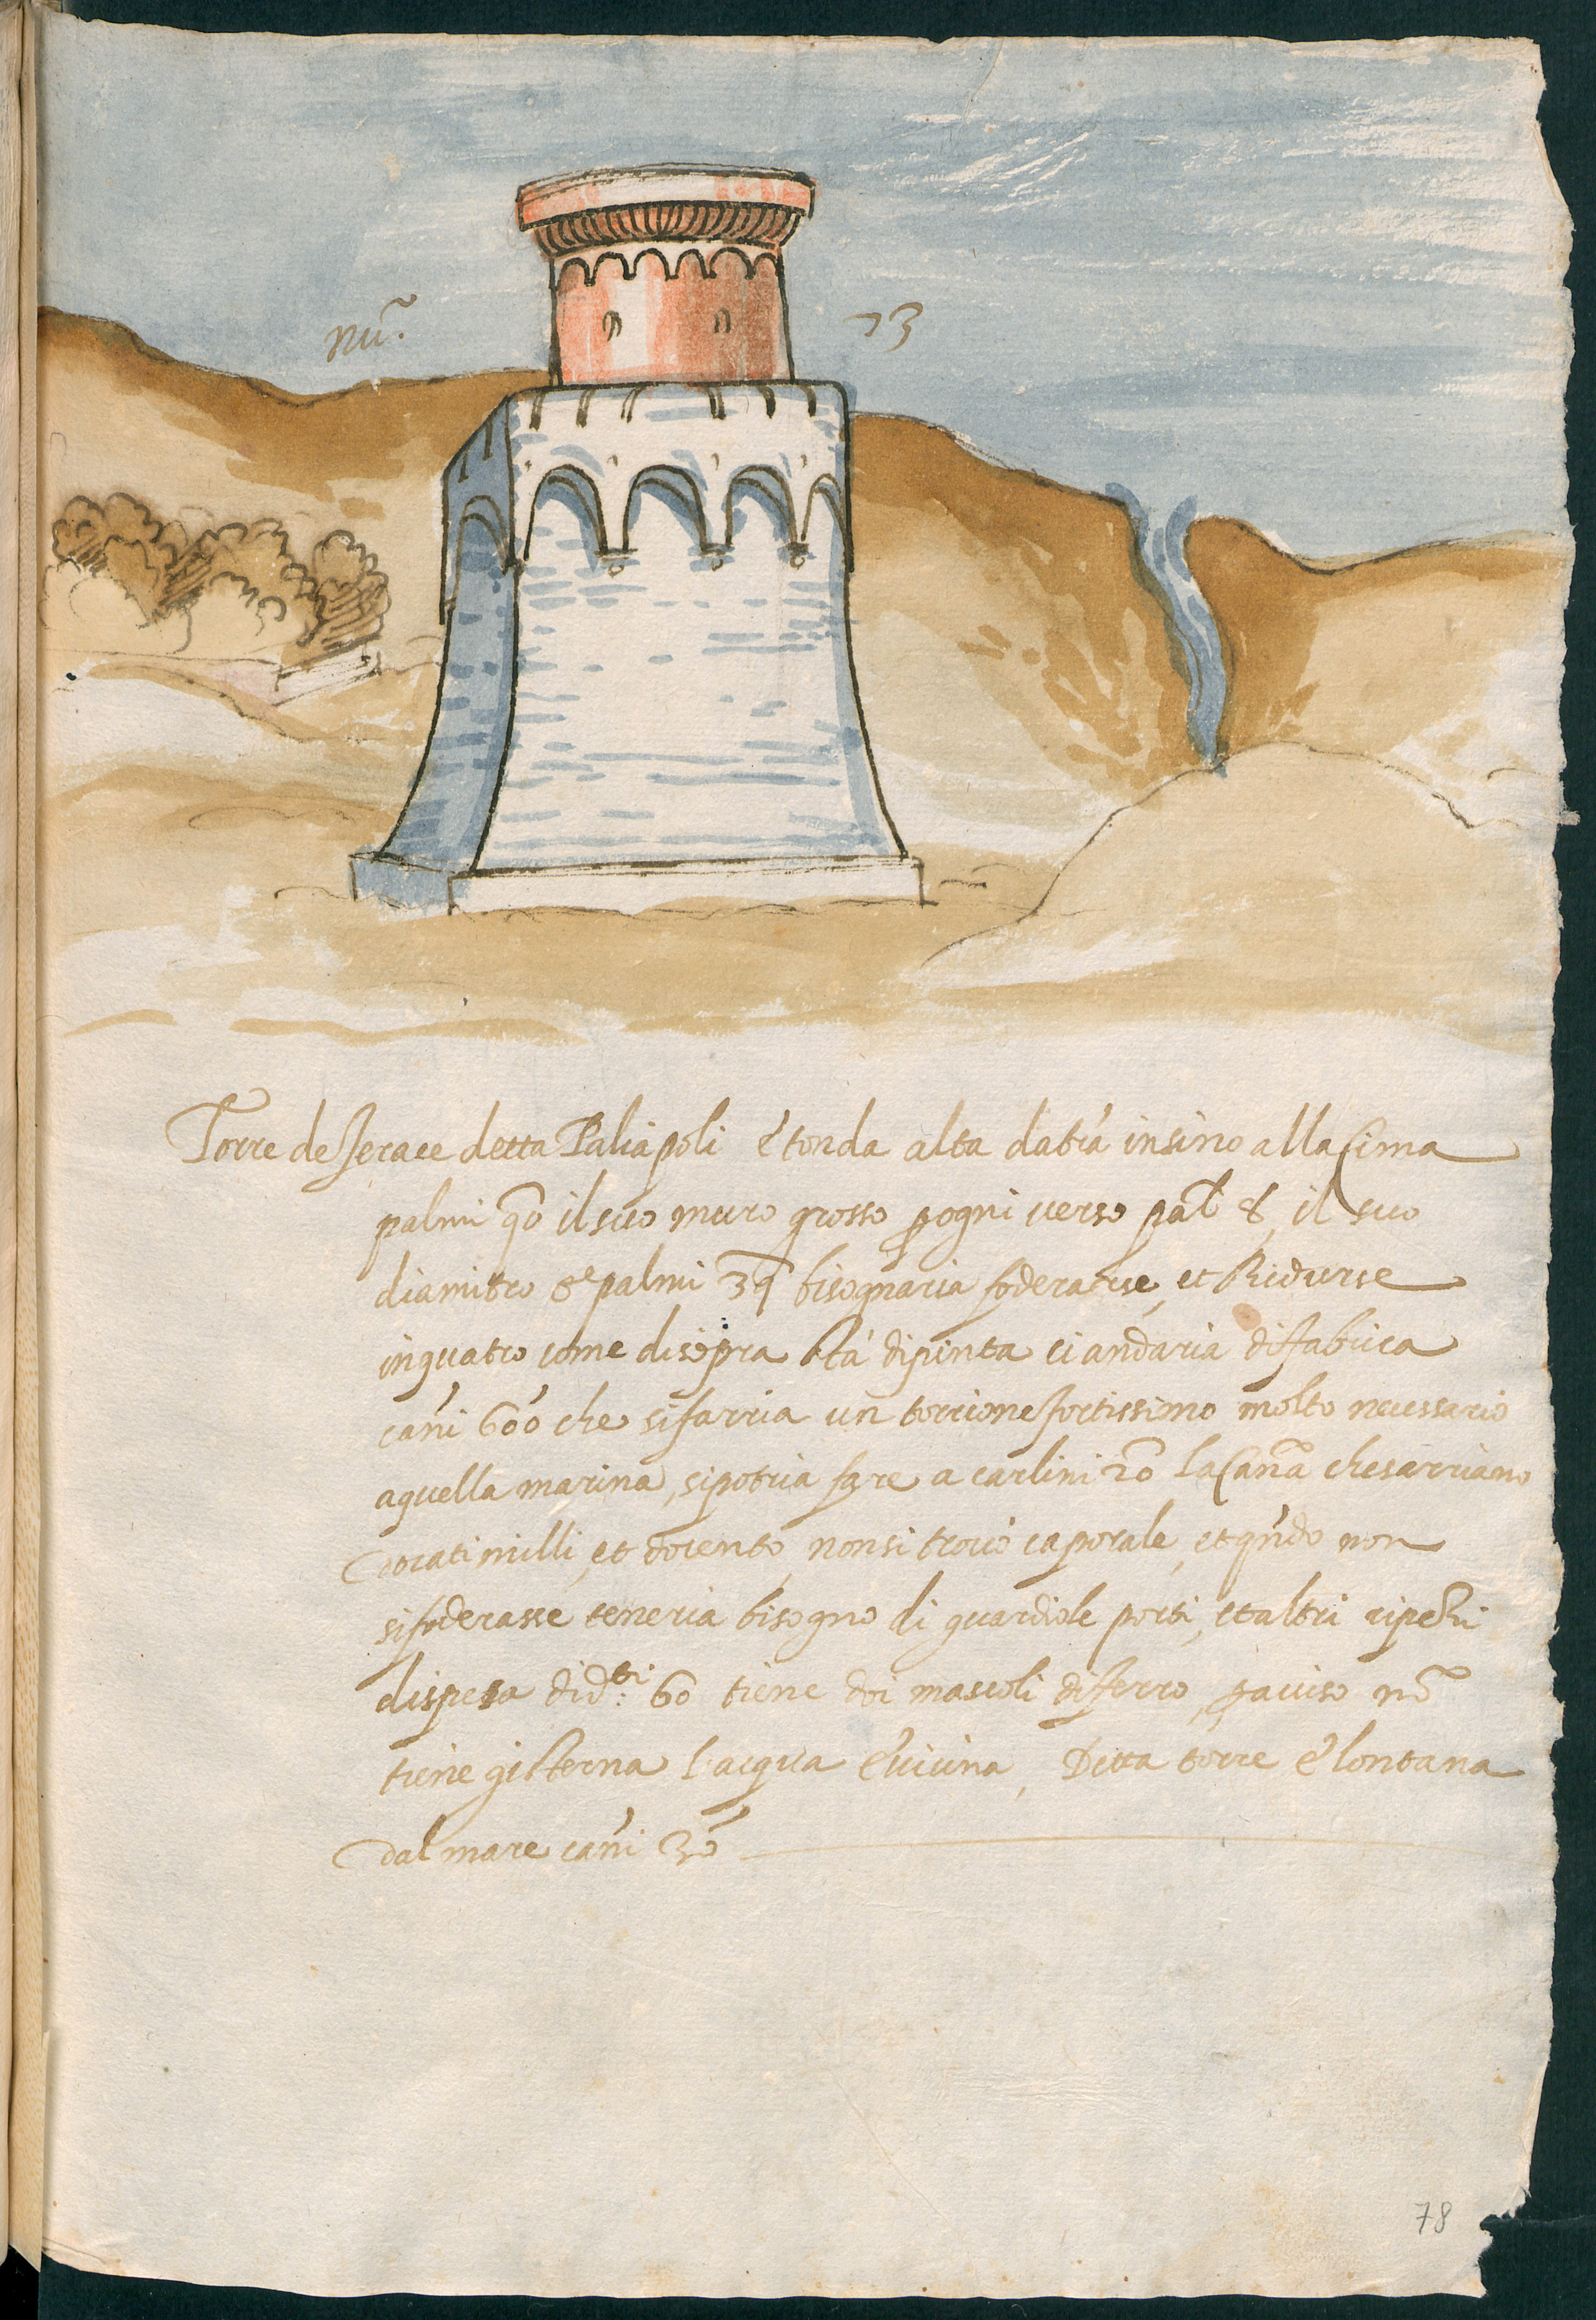 nũ. 73
Torre de Jerace detta Paliapoli è tonda alta da trà insino alla Cima
palmi 40 il suo muro grosso p ogni verso pal 8, il suo
diamitro è palmi 34 bisognaria foderarse, et Ridurse
in quatro come di sopra stà dipinta ci andaria di fabrica
cañi 600 che si farria un torrione fortissimo molto necessario
a quella marina, si potria fare a carlini 20 la Canna che sarriano
Docati milli, et docento, non si trovò caporale, et qñdo non
si foderasse teneria bisogno di guardiole porti, et altri
di spesa di d.ti 60 tiene doi mascoli di ferro, p aviso nõ
tiene gisterna l'acqua è vicina, Ditta torre è lontana
dal mare cañi 30
78